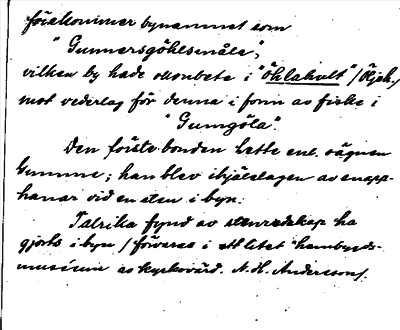 förekommer bynamnet som
"Gunnersgöklsmåla",
vilken by hade okonbete i "Öklahult" / Öljeh./
mot vederlag för denna i form av fiske i
"Gumgöla".
Den förste bonden hette enl. sägnen
Gumme; han blev ihjälslagen av snapp-
hanar vid en sten i byn.
Talrika fynd av stenredskap ha
gjorts i byn / förvaras i ett litet hembygds-
museum av kyrkovärd. N. H. Andersson/.